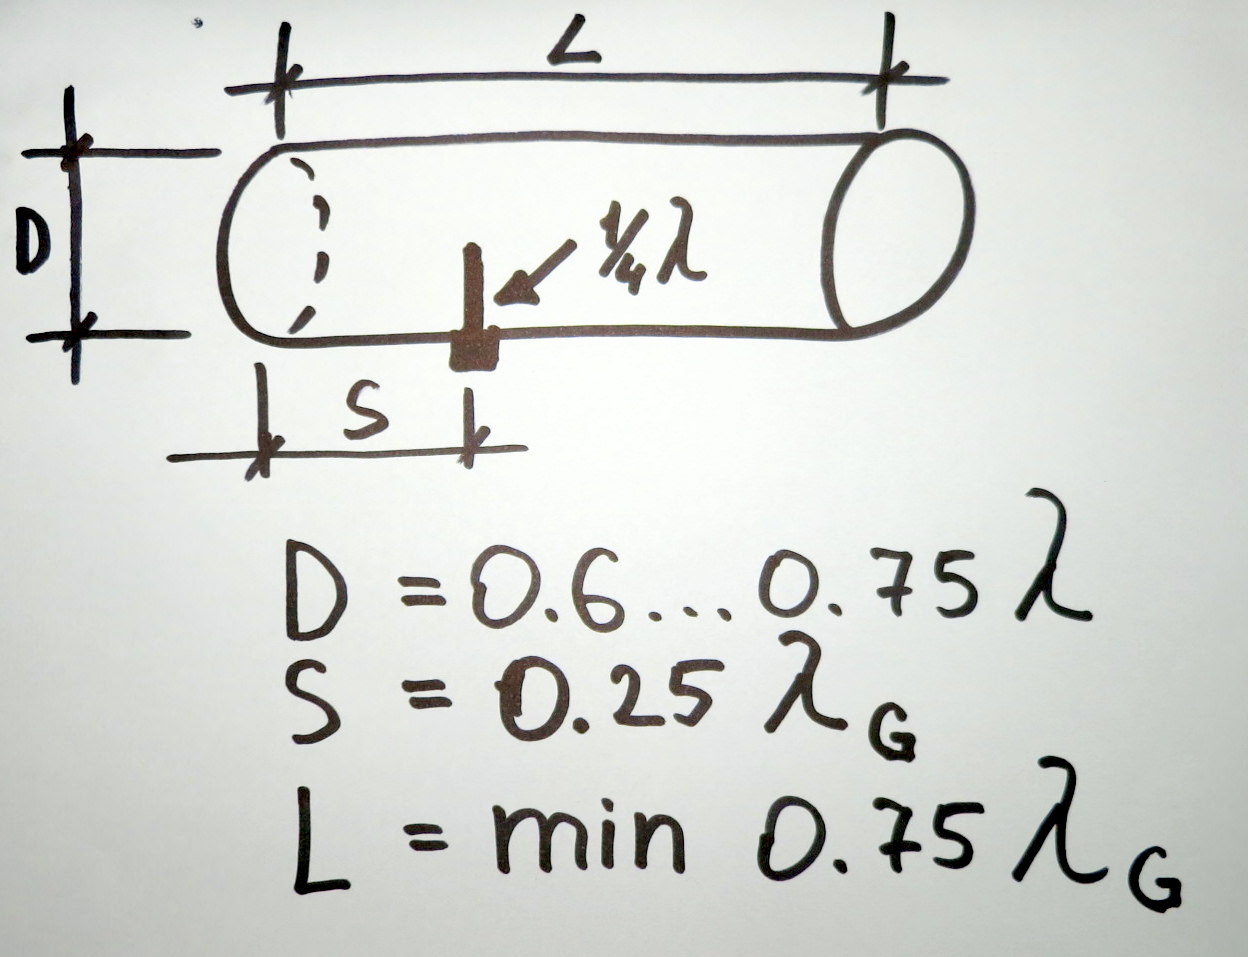 L
D
1/4 λ
S
D = 0.6... 0.75 λ
S = 0.25 λG
L = min 0.75 λG